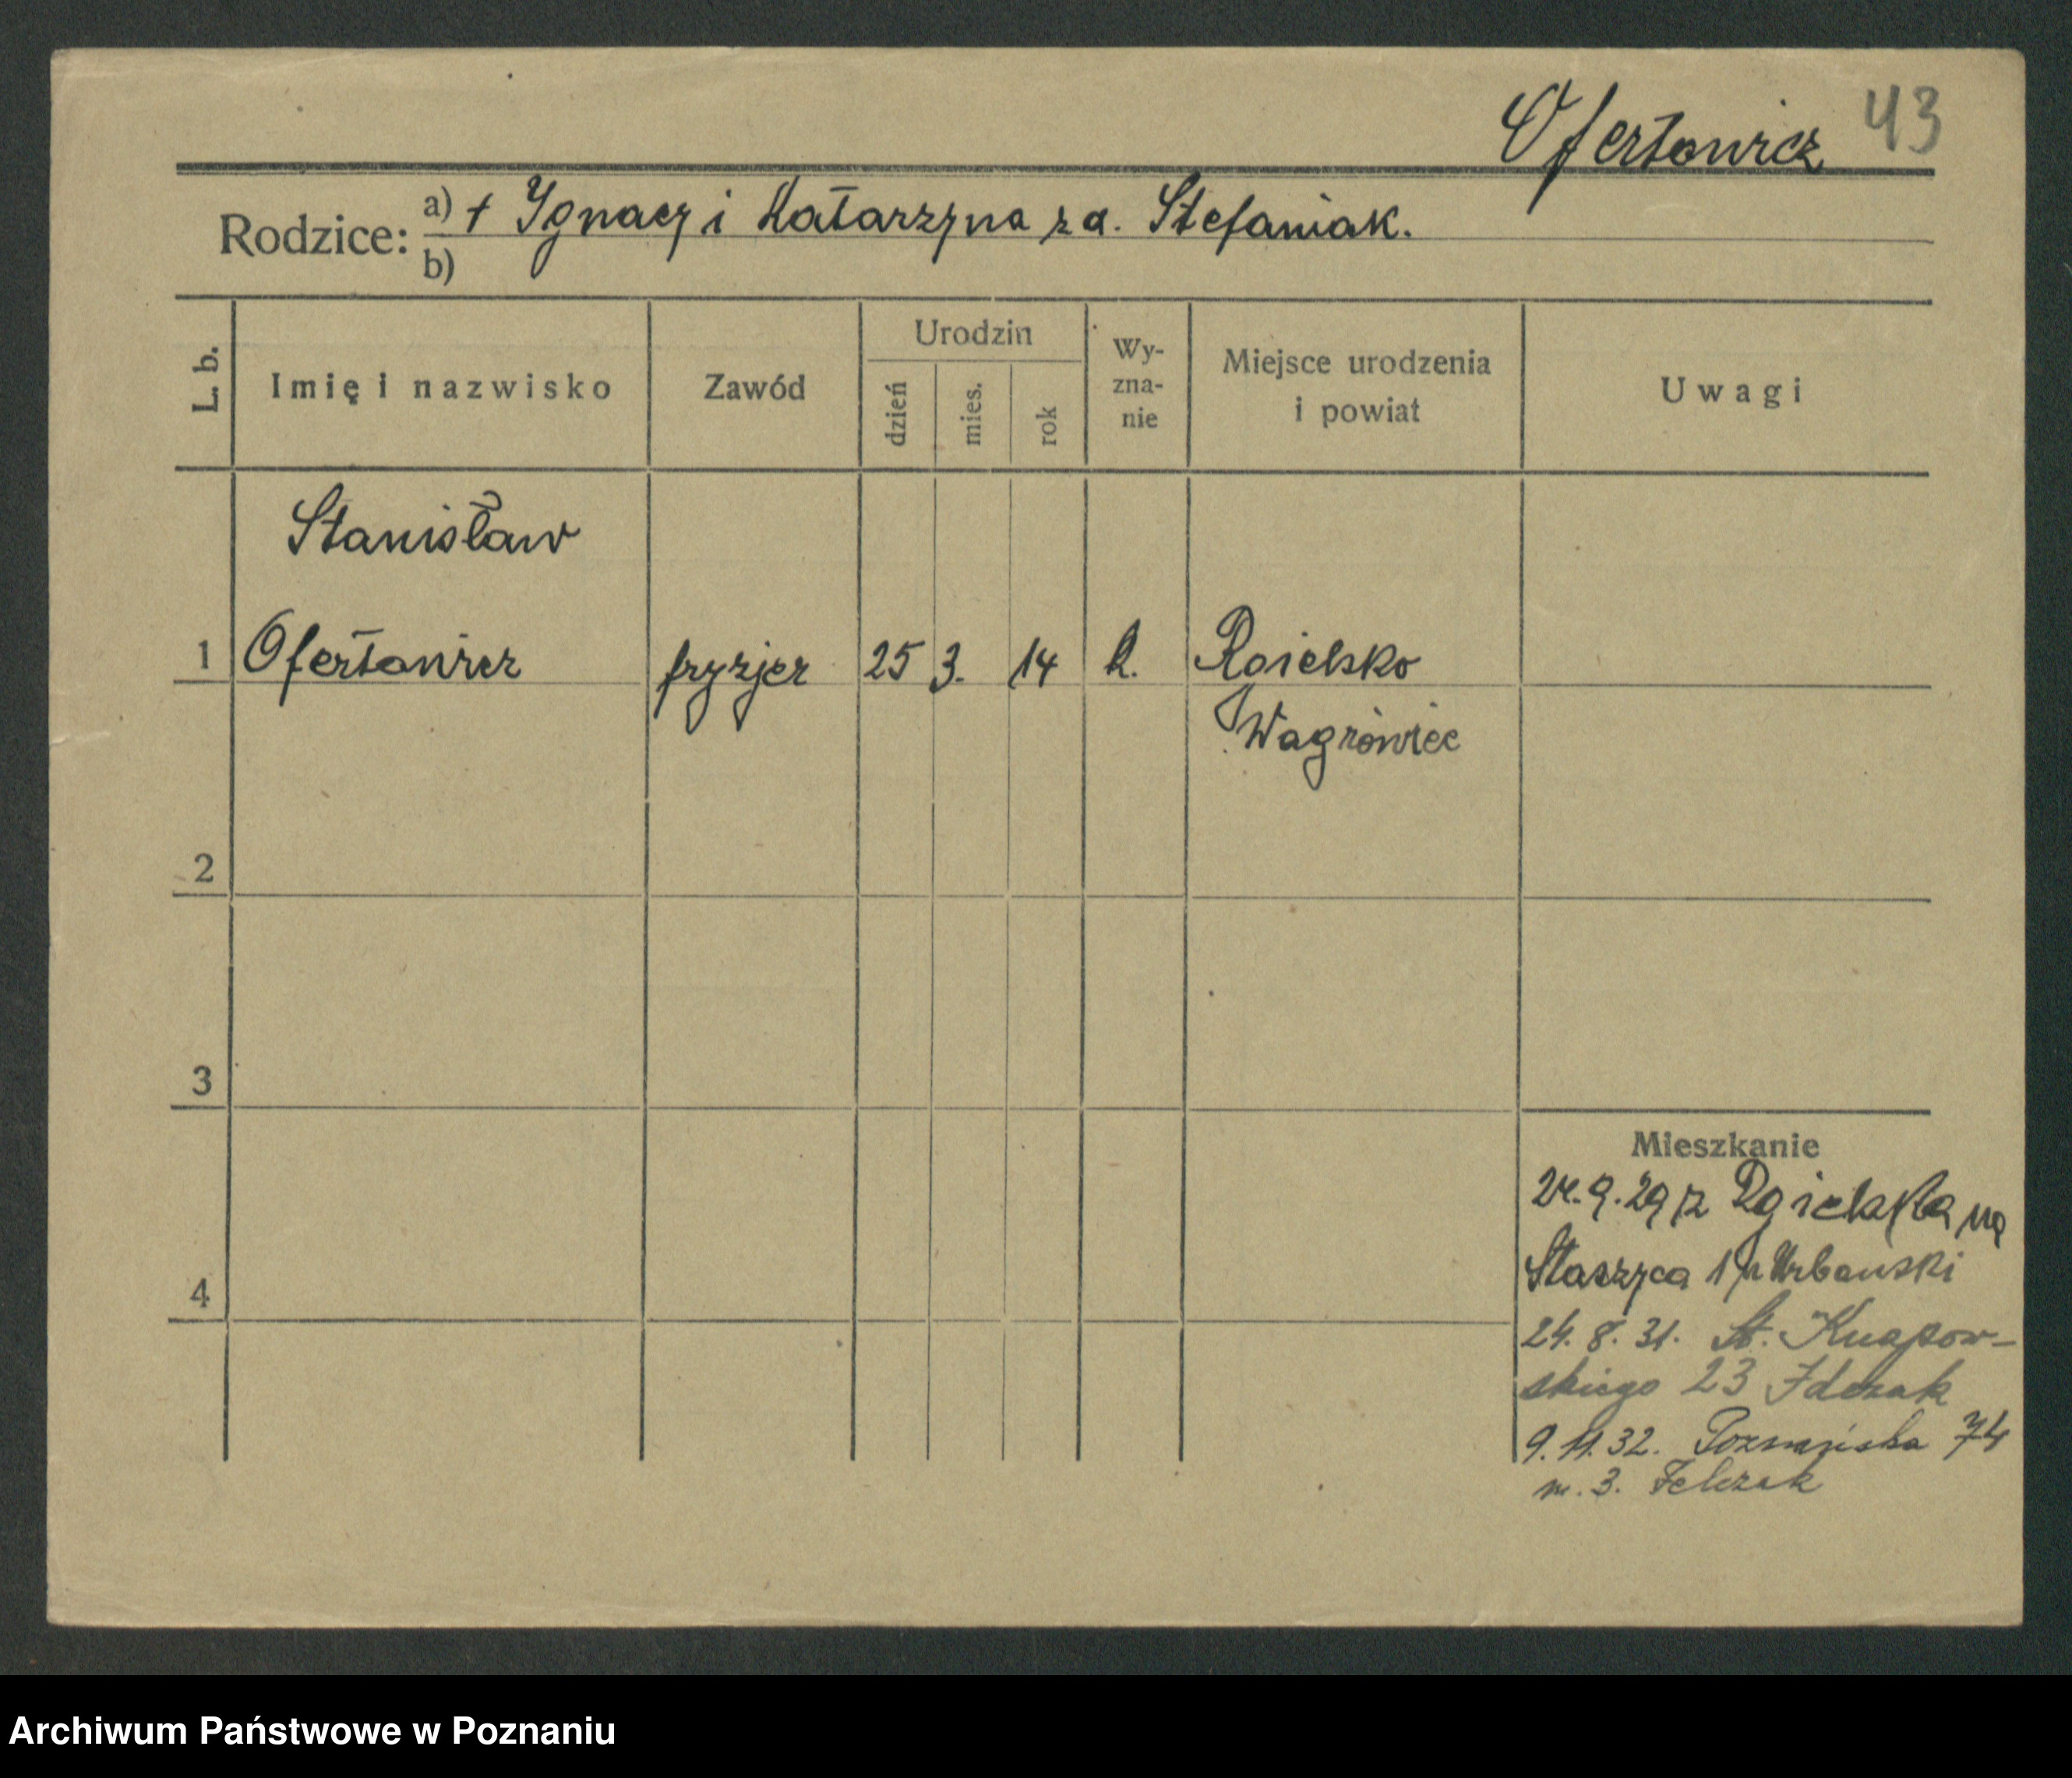 Ofertowicz 43
Rodzice: a) + Ignacy i Katarzyna za. Stefaniak.
b)
L. b. Imię i nazwisko Zawód Urodzin dzień mies. rok Wy-zna-nie Miejsce urodzenia i powiat Uwagi
Stanisław
1 Ofertowicz fryzjer 25 3. 14 k. Rgielsko
Wagrówiec
2
3
Mieszkanie
9.29 z Rgielska na
Staszyca 1 Urbański
4
24. 8. 31. St. Knapow-
skiego 23
9. 11. 32. Poznańska 74
m. 3.
Archiwum Państwowe w Poznaniu